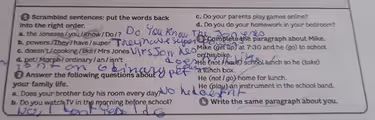 1 Scrambled sentences: put the words back
into the right order.
a. the Joneses / you / know / Do / ? Do You Know The Joneses
b. powers / They / have / super They have super
c. doesn't / cooking / like / Mrs Jones Mrs Jon
d. pet / Margie / ordinary / an / isn't
2 Answer the following questions about
your family life.
a. Does your brother tidy his room every day? No he doesn't
b. Do you watch TV in the morning before school?
No, I don't
c. Do your parents play games online?
d. Do you do your homework in your bedroom?
Complete the paragraph about Mike.
Mike (get up) at 7:30 and he (go) to school
on his bike.
He (not / have) school lunch so he (take)
a lunch box.
He (not / go) home for lunch.
He (play) an instrument in the school band.
Write the same paragraph about you.